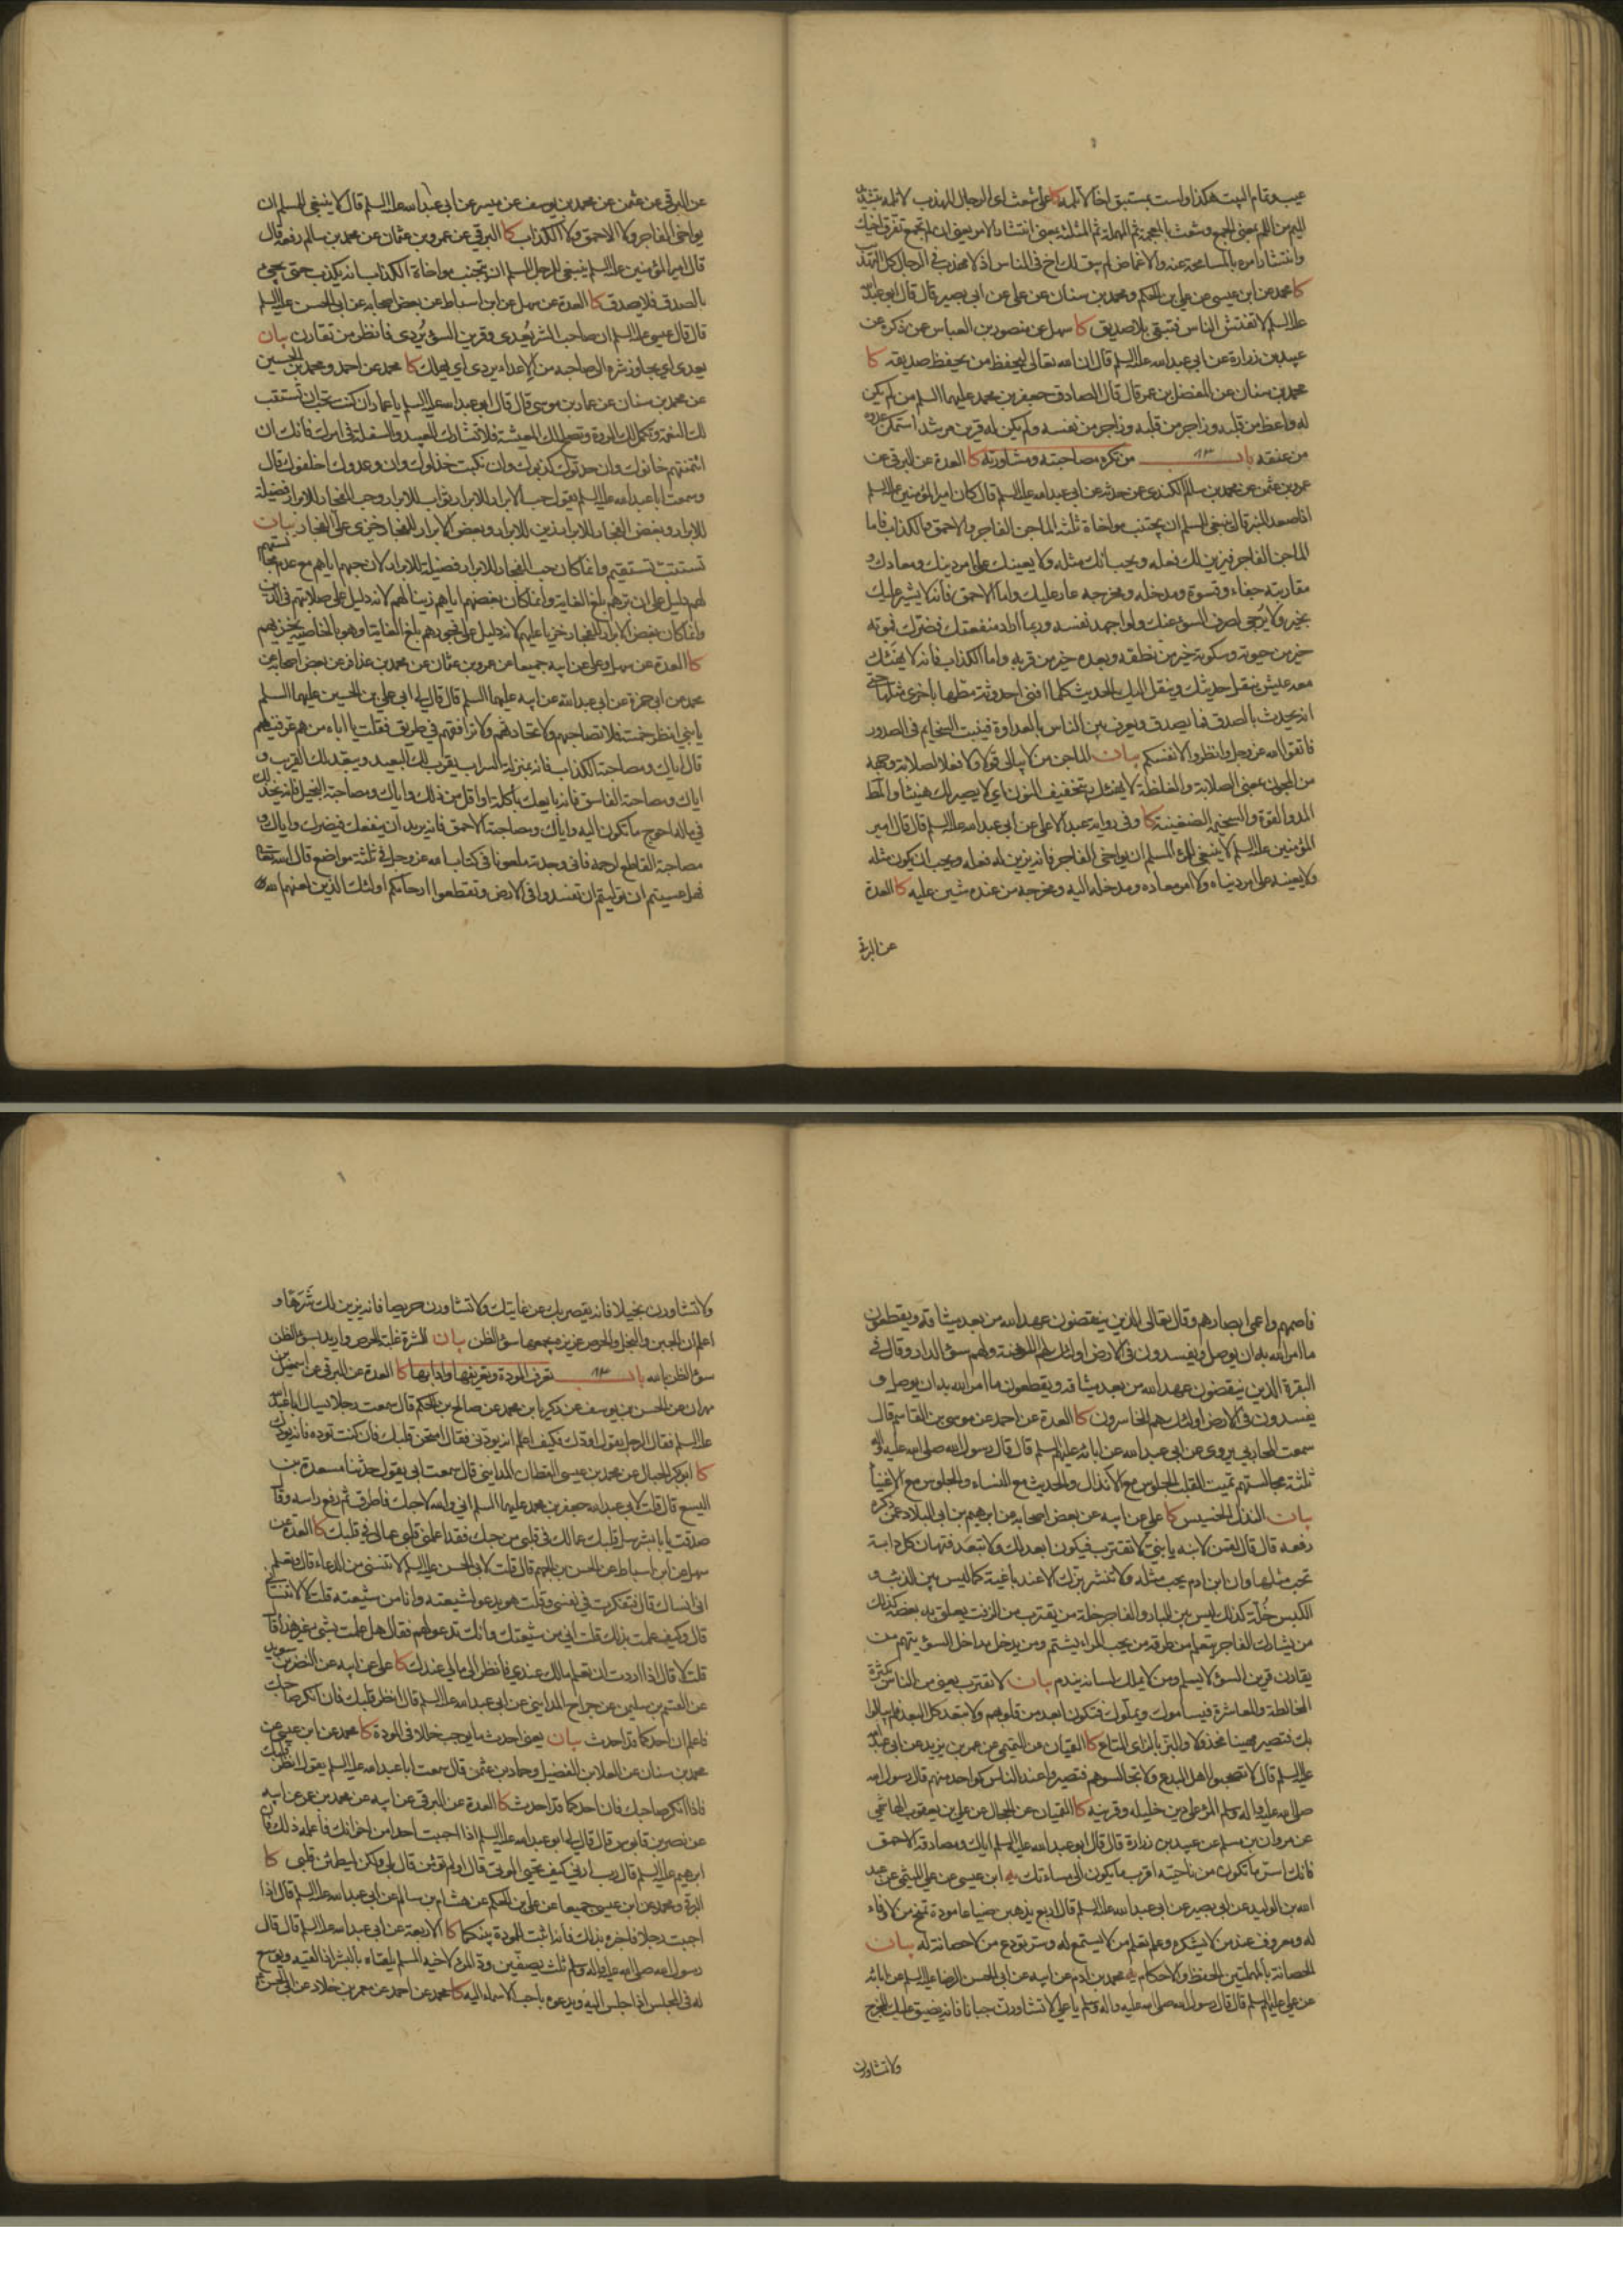 عيب وتمام البيت هكذا ولست بمستبق اخا لا تلمه كا على شعث اى الرجال المهذب لا تلمه بتشديد
الميم من اللم بمعنى الجمع وشعث بالمعجمة ثم المهملة ثم المثلثة بمعنى انتشار الامر يعنى ان لم تجمع تفرق اخيك
وانتشار امره بالمسامحة عنه والاغماض لم يبق لك اخ فى الناس اذ لا مهذب فى الرجال كل التهذيب
كا محمد عن ابن عيسى عن على بن الحكم ومحمد بن سنان عن على عن ابى بصير قال قال ابو عبد الله
عليه السلم لا تفتش الناس فتبقى بلا صديق كا سهل عن منصور بن العباس عن ذكره عن
عبيد بن زرارة عن ابى عبد الله عليه السلم قال ان الله تعالى ليحفظ من يحفظ صديقه كا
محمد بن سنان عن المفضل بن عمر قال قال الصادق جعفر بن محمد عليهما السلم من لم يكن
له واعظ من قلبه وزاجر من نفسه ولم يكن له قرين مرشد استمكن عدوه
من عنقه باب ٩٣ من تكره مصاحبته ومشاورته كا العدة عن البرقى عن
عمرو بن عثمن عن محمد بن سالم الكندى عن حدثه عن ابى عبد الله عليه السلم قال كان امير المؤمنين عليه السلم
اذا صعد المنبر قال ينبغى للمسلم ان يجتنب مواخاة ثلثة الماجن الفاجر والاحمق والكذاب فاما
الماجن الفاجر فيزين لك فعله ويحب انك مثله ولا يعينك على امر دينك ومعادك و
مقاربته جفاء وقسوة ومدخله ومخرجه عار عليك واما الاحمق فانه لا يشير عليك
بخير ولا يرجى لصرف السوء عنك ولو اجهد نفسه وربما اراد منفعتك فضرك فموته
خير من حيوته وسكوته خير من نطقه وبعده خير من قربه واما الكذاب فانه لا يهنئك
معه عيش ينقل حديثك وينقل اليك الحديث كلما افنى احدوثة مطها باخرى مثلها حتى
انه يحدث بالصدق فما يصدق ويعرف بين الناس بالعداوة فينبت السخايم فى الصدور
فاتقوا الله عز وجل وانظروا لانفسكم بيان الماجن من لا يبالى قولا ولا فعلا لصلابة وجهه
من المجون بمعنى الصلابة والغلظة لا يهنئك بتخفيف النون اى لا يصير لك هنيئا والمط
المد والقوة والسخيمة الضغينة كا وفى رواية عبد الاعلى عن ابى عبد الله عليه السلم قال قال امير
المؤمنين عليه السلم لا ينبغى للمرء المسلم ان يواخى الفاجر فانه يزين له فعله ويحب ان يكون مثله
ولا يعينه على امر دنياه ولا امر معاده ومدخله اليه ومخرجه من عنده شين عليه كا العدة
عن البرقى
عن البرقى عن عثمن عن محمد بن يوسف عن ميسر عن ابى عبد الله عليه السلم قال لا ينبغى للمسلم ان
يواخى الفاجر ولا الاحمق ولا الكذاب كا البرقى عن عمرو بن عثمان عن محمد بن سالم رفعه قال
قال امير المؤمنين عليه السلم ينبغى للرجل المسلم ان يجتنب مواخاة الكذاب انه يكذب حتى يجىء
بالصدق فلا يصدق كا العدة عن سهل عن ابن اسباط عن بعض اصحابه عن ابى الحسن عليه السلم
قال قال عيسى عليه السلم ان صاحب الشر يعدى وقرين السوء يردى فانظر من تقارن بيان
يعدى اى يجاوز شره الى صاحبه من الاعداء يردى اى يهلك كا محمد عن احمد ومحمد بن الحسين
عن محمد بن سنان عن عمار بن موسى قال قال ابو عبد الله عليه السلم يا عمار ان كنت تحب ان تستتب
لك النعمة وتكمل لك المروة وتصلح لك المعيشة فلا تشارك العبيد والسفلة فى امرك فانك ان
ائتمنتهم خانوك وان حدثوك كذبوك وان نكبت خذلوك وان وعدوك اخلفوك قال
وسمعت ابا عبد الله عليه السلم يقول حب الابرار للابرار ثواب للابرار وحب الفجار للابرار فضيلة
للابرار وبغض الفجار للابرار زين للابرار وبغض الابرار للفجار خزى على الفجار بيان
تستتب تستقيم وانما كان حب الفجار للابرار فضيلة للابرار لان حبهم اياهم مع عدم مجانستهم
لهم دليل على ان برهم بلغ الغاية وانما كان بغضهم اياهم زينا لهم لانه دليل على صلابتهم فى الدين
وانما كان بغض الابرار للفجار خزيا عليهم لانه دليل على ان فجورهم بلغ الغاية او هو بالخاصية يخزيهم
كا العدة عن سهل وعلى عن ابيه جميعا عن عمرو بن عثمان عن محمد بن عذافر عن بعض اصحابه عن
محمد عن ابى حمزة عن ابى عبد الله عن ابيه عليهما السلم قال قال لى ابى على بن الحسين عليهما السلم
يا بنى انظر خمسة فلا تصاحبهم ولا تحادثهم ولا ترافقهم فى طريق فقلت يا اباه من هم عرفنيهم
قال اياك ومصاحبة الكذاب فانه بمنزلة السراب يقرب لك البعيد ويبعد لك القريب و
اياك ومصاحبة الفاسق فانه بايعك باكلة او اقل من ذلك واياك ومصاحبة البخيل فانه يخذلك
فى ماله احوج ما تكون اليه واياك ومصاحبة الاحمق فانه يريد ان ينفعك فيضرك واياك و
مصاحبة القاطع لرحمه فانى وجدته ملعونا فى كتاب الله عز وجل فى ثلثة مواضع قال الله تعالى
فهل عسيتم ان توليتم ان تفسدوا فى الارض وتقطعوا ارحامكم اولئك الذين لعنهم الله
فاصمهم واعمى ابصارهم وقال تعالى الذين ينقضون عهد الله من بعد ميثاقه ويقطعون
ما امر الله به ان يوصل ويفسدون فى الارض اولئك لهم اللعنة ولهم سوء الدار وقال فى
البقرة الذين ينقضون عهد الله من بعد ميثاقه ويقطعون ما امر الله به ان يوصل و
يفسدون فى الارض اولئك هم الخاسرون كا العدة عن احمد عن موسى بن القاسم قال
سمعت المحاربى يروى عن ابى عبد الله عن ابائه عليهم السلم قال قال رسول الله صلى الله عليه واله
ثلثة مجالستهم تميت القلب الجلوس مع الانذال والحديث مع النساء والجلوس مع الاغنياء
بيان النذل الخسيس كا على عن ابيه عن بعض اصحابه عن ابرهيم بن ابى البلاد عمن ذكره
رفعه قال قال لقمن لابنه يا بنى لا تقترب فيكون ابعد لك ولا تبعد فتهان كل دابة
تحب مثلها وان ابن ادم يحب مثله ولا تنشر بزك الا عند باغيه كما ليس بين الذئب و
الكبش خلة كذلك ليس بين البار والفاجر خلة من يقترب من الزفت يعلق به بعضه كذلك
من يشارك الفاجر يتعلم من طرقه من يحب المراء يشتم ومن يدخل مداخل السوء يتهم من
يقارن قرين السوء لا يسلم ومن لا يملك لسانه يندم بيان لا تقترب يعنى من الناس بكثرة
المخالطة والمعاشرة فيسأموك ويملوك فتكون ابعد من قلوبهم ولا تبعد كل البعد فلم يبالوا
بك فتصير مهينا مخذولا والبز بالزاى المتاع كا القميان عن التميمى عن عمر بن يزيد عن ابى عبد الله
عليه السلم قال لا تصحبوا اهل البدع ولا تجالسوهم فتصيروا عند الناس كواحد منهم قال رسول الله
صلى الله عليه واله وسلم المرء على دين خليله وقرينه كا القميان عن الحجال عن على بن يعقوب الهاشمى
عن مروان بن مسلم عن عبيد بن زرارة قال قال ابو عبد الله عليه السلم اياك ومصادقة الاحمق
فانك اسر ما تكون من ناحيته اقرب ما يكون الى مساءتك يه ابن عيسى عن على الميثمى عن عبد
الله بن الوليد عن ابى بصير عن ابى عبد الله عليه السلم قال اربع يذهبن ضياعا مودة تمنح من لا وفاء
له ومعروف عند من لا يشكره وعلم يعلم من لا يستمع له وسر يودع من لا حصانة له بيان
الحصانة بالمهملتين الحفظ والاحكام يه محمد بن ادم عن ابيه عن ابى الحسن الرضا عليه السلم عن ابائه
عن على عليهم السلم قال قال رسول الله صلى الله عليه واله وسلم يا على لا تشاورن جبانا فانه يضيق عليك المخرج
ولا تشاورن
ولا تشاورن بخيلا فانه يقصر بك عن غايتك ولا تشاورن حريصا فانه يزين لك شرها و
اعلم ان الجبن والبخل والحرص غريزة يجمعها سوء الظن بيان الشره غلبة الحرص واريد بسوء الظن
سوء الظن بالله باب ٩٤ تعرف المودة وتعريفها وادابها كا العدة عن البرقى عن اسمعيل بن
مهران عن الحسن بن يوسف عن زكريا بن محمد عن صالح بن الحكم قال سمعت رجلا يسال ابا عبد الله
عليه السلم فقال الرجل يقول اودك فكيف اعلم انه يودنى فقال امتحن قلبك فان كنت توده فانه يودك
كا ابو بكر الحبال عن محمد بن عيسى القطان المداينى قال سمعت ابى يقول حدثنا مسعدة بن
اليسع قال قلت لابى عبد الله جعفر بن محمد عليهما السلم انى والله لاحبك فاطرق ثم رفع راسه وقال
صدقت يا ابا بشر سل قلبك عما لك فى قلبى من حبك فقد اعلمنى قلبى عما لى فى قلبك كا العدة عن
سهل عن ابن اسباط عن الحسن بن الجهم قال قلت لابى الحسن عليه السلم لا تنسنى من الدعاء قال وتعلم
انى انساك قال فتفكرت فى نفسى وقلت هو يدعو لشيعته وانا من شيعته قلت لا لا تنسانى
قال وكيف علمت بذلك قلت انى من شيعتك وانك تدعو لهم فقال هل علمت بشىء غير هذا قال
قلت لا قال اذا اردت ان تعلم ما لك عندى فانظر الى ما لى عندك كا على عن ابيه عن النضر بن سويد
عن القسم بن سليمن عن جراح المداينى عن ابى عبد الله عليه السلم قال انظر قلبك فان انكر صاحبك
فاعلم ان احدكما قد احدث بيان يعنى احدث ما يوجب خللا فى المودة كا محمد عن ابن عيسى عن
محمد بن سنان عن العلا بن الفضيل وحماد بن عثمن قال سمعت ابا عبد الله عليه السلم يقول انظر قلبك
فاذا انكر صاحبك فان احدكما قد احدث كا العدة عن البرقى عن ابيه عن محمد بن عمر عن ابيه
عن نصر بن قابوس قال قال لى ابو عبد الله عليه السلم اذا احببت احدا من اخوانك فاعلمه ذلك فان
ابرهيم عليه السلم قال رب ارنى كيف تحيى الموتى قال اولم تؤمن قال بلى ولكن ليطمئن قلبى كا
البرقى ومحمد عن ابن عيسى جميعا عن على بن الحكم عن هشام بن سالم عن ابى عبد الله عليه السلم قال اذا
احببت رجلا فاخبره بذلك فانه اثبت للمودة بينكما كا الاربعة عن ابى عبد الله عليه السلم قال قال
رسول الله صلى الله عليه واله وسلم ثلث يصفين ود المرء لاخيه المسلم يلقاه بالبشر اذا لقيه ويوسع
له فى المجلس اذا جلس اليه ويدعوه باحب الاسماء اليه كا محمد عن احمد عن معمر بن خلاد عن ابى الحسن